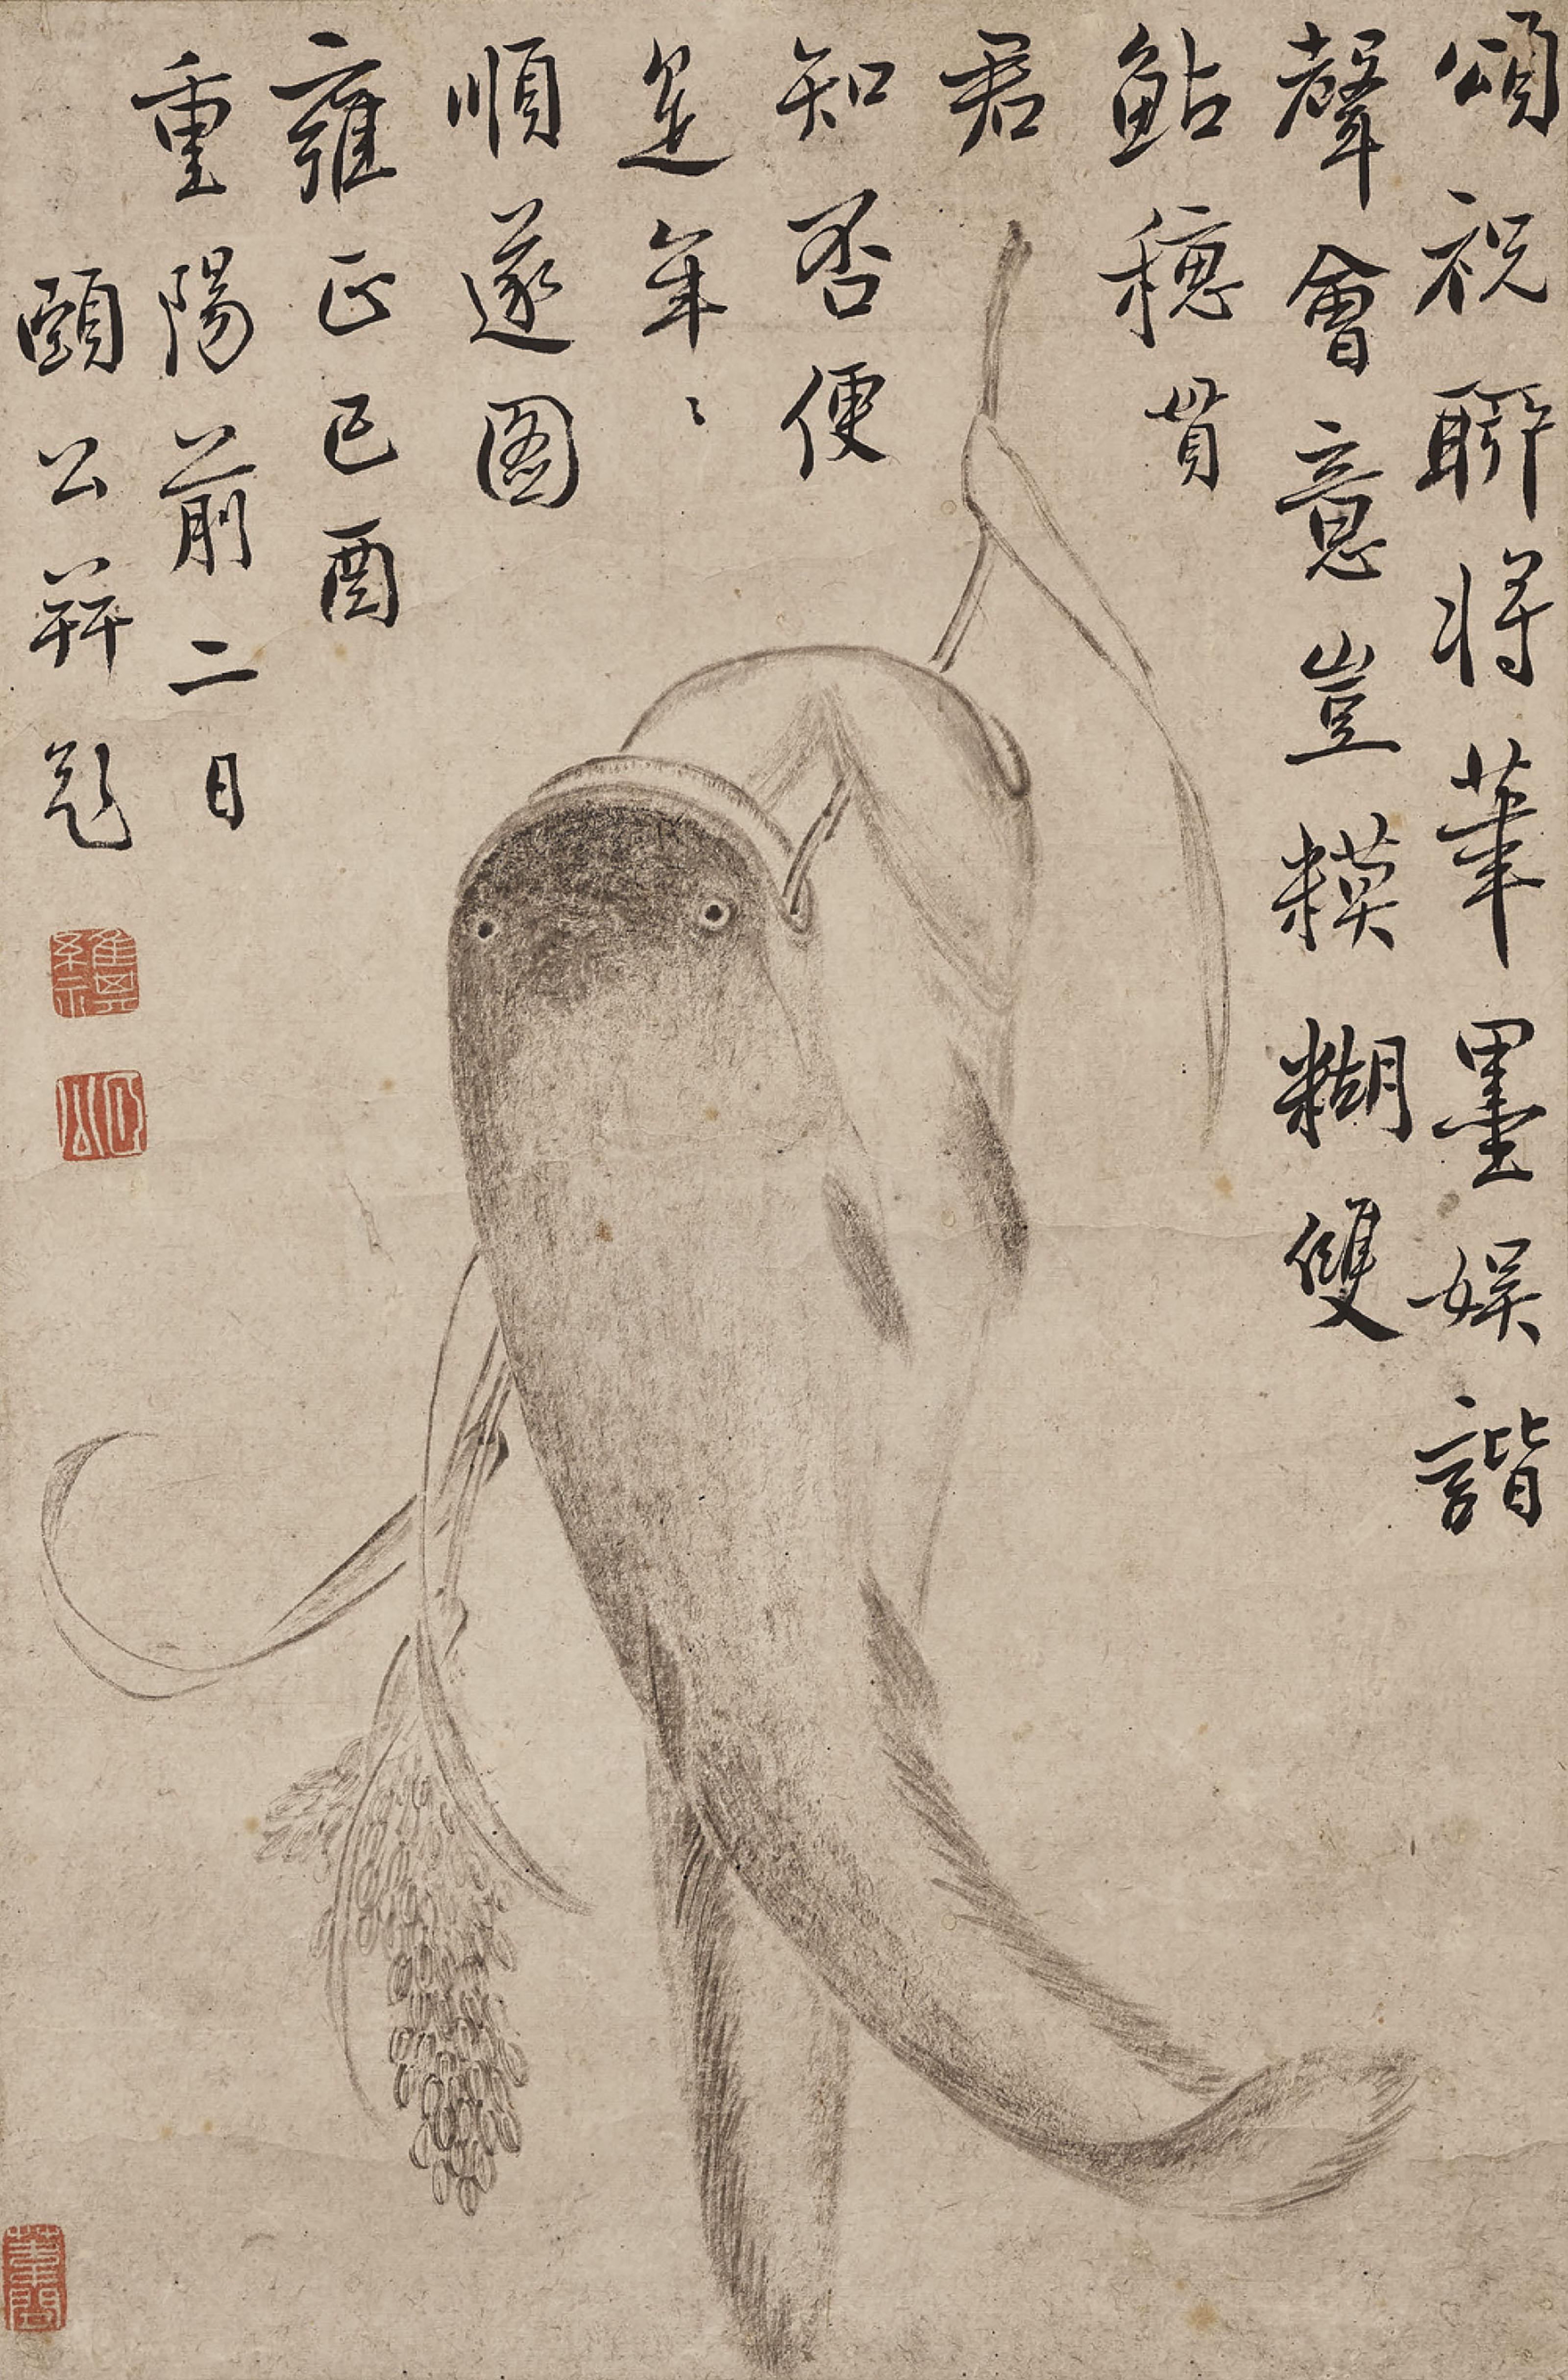 頌祝聊將筆墨娛諧
聲會意豈糢糊雙
鮎穗貫
君
知否便
是年〻
順遂圖
雍正己酉
重陽前二日
頤公并題